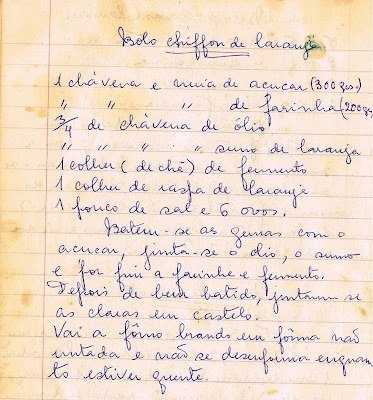 Bolo chiffon de laranja
1 chávena e meia de açucar (300 grs.)
" " " de farinha (200 grs
3/4 de chávena de óleo
" " " " sumo de laranja
1 colher (de chá) de fermento
1 colher de raspa de laranja
1 pouco de sal e 6 ovos.
Batem-se as gemas com o
açucar, junta-se o óleo, o sumo
e por fim a farinha e fermento.
Depois de bem batido, juntam-se
as claras em castelo.
Vai a fôrno brando em fôrma não
untada e não se desenforma enquan-
to estiver quente.